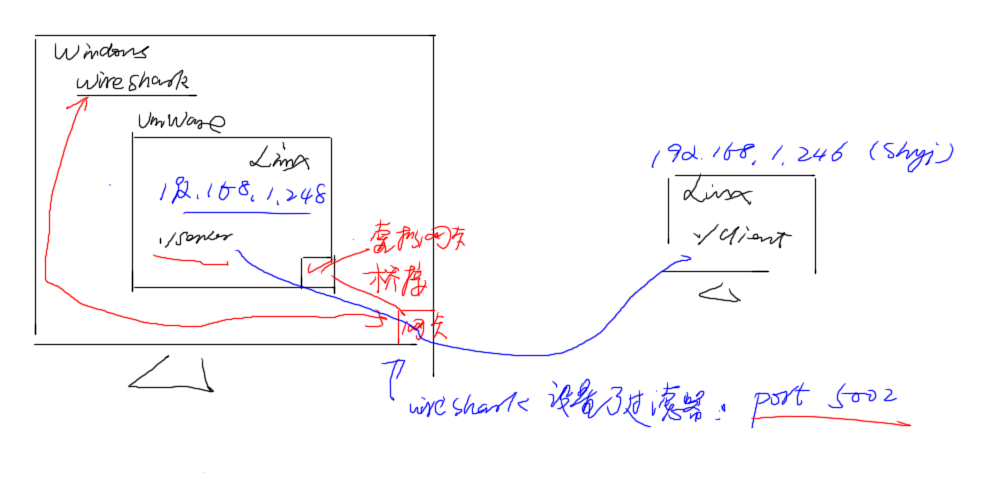 Windows
wireshark
VmWare
Linux
192.168.1.248
./server
虚拟网卡
桥接
网卡
192.168.1.246 (Shyj)
Linux
./client
wireshark 设置了过滤器: port 5002